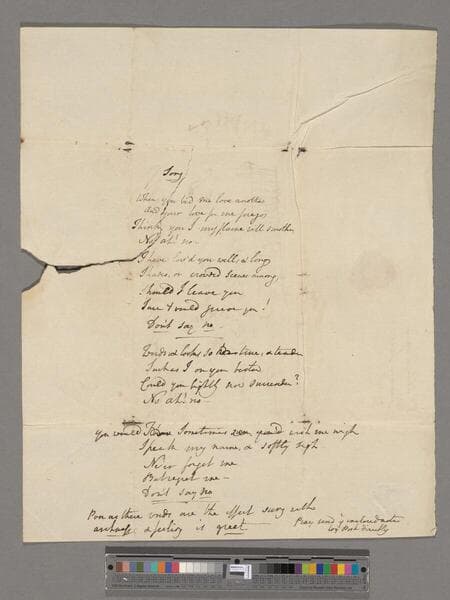 Song
When you bid me love another
And your love for me forego
Think you I my flame will smother
No! ah! no —
I have lov'd you well, & long
Shades, or crowded scenes among,
Should I leave you
Sure t'would grieve you!
Don't say no —
Words & looks so true, & tender
Such as I on you bestow
Could you lightly now surrender?
No ah! no —
you would Sometimes you'd wish me nigh
Speak my name, & softly sigh
Never forget me
But regret me —
Don't say no
Poor as these words are the effect sung with
archness & feeling is great
Pray send enclosed note
by Post directly